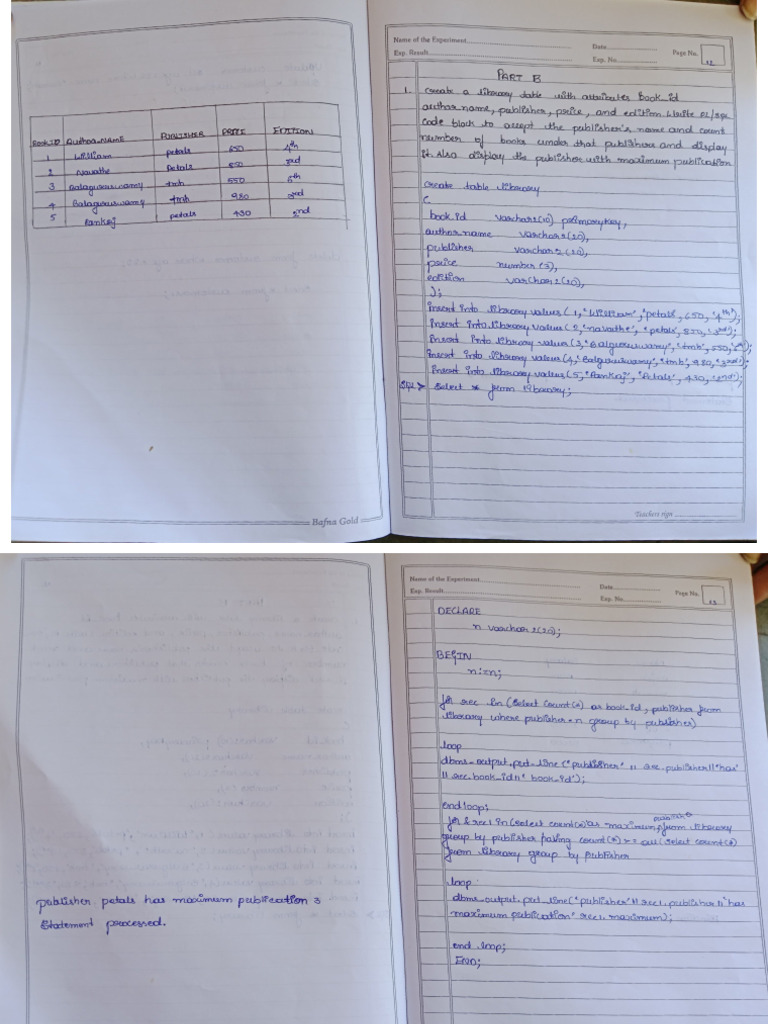 BOOK ID AUTHOR NAME PUBLISHER PRICE EDITION
1 William petals 650 4th
2 Navathe Petals 850 3rd
3 Balaguruswamy tmh 550 6th
4 Balaguruswamy tmh 980 3rd
5 Pankaj petals 430 2nd
Bafna Gold
Name of the Experiment Date
Page No. 12
Exp. Result Exp. No.
PART B
1. Create a library table with attributes book_id
author name, publisher, price, and edition. Write PL/SQL
code block to accept the publisher's name and count
number of books under that publisher and display
it also display the publisher with maximum publication
Create table library
(
book.id varchar2(10) primary key,
author name varchar2(20),
publisher varchar2(20),
price number(3),
edition varchar2(20),
);
Insert into library values(1,'William','petals',650,'4th');
Insert into library values(2,'navathe','petals',
Insert into library values(3,'Balguruswamy','tmh',550,
Insert into library values(4,'Balguruswamy','tmh',980,'3rd');
Insert into library values(5,'Pankaj','Petals',430,'2nd');
SQL> Select * from library;
Teachers sign
Name of the Experiment Date
Page No. 13
Exp. Result Exp. No.
DECLARE
n varchar2(20);
BEGIN
n:=n;
for rec in(select count(*) as book_id, publisher from
library where publisher=n group by publisher)
loop
dbms_output.put_line('publisher' || rec.publisher||'has'
|| rec.book_id||' book_id');
end loop;
publisher
for rec1 in(select count(*)as maximum, from library
group by publisher having count(*) >= all(select count(*)
from library group by publisher
loop
dbms_output.put_line('publisher'|| rec1.publisher ||'has
maximum publication' rec1.maximum);
end loop;
END;
publisher petals has maximum publication 3
Statement processed.